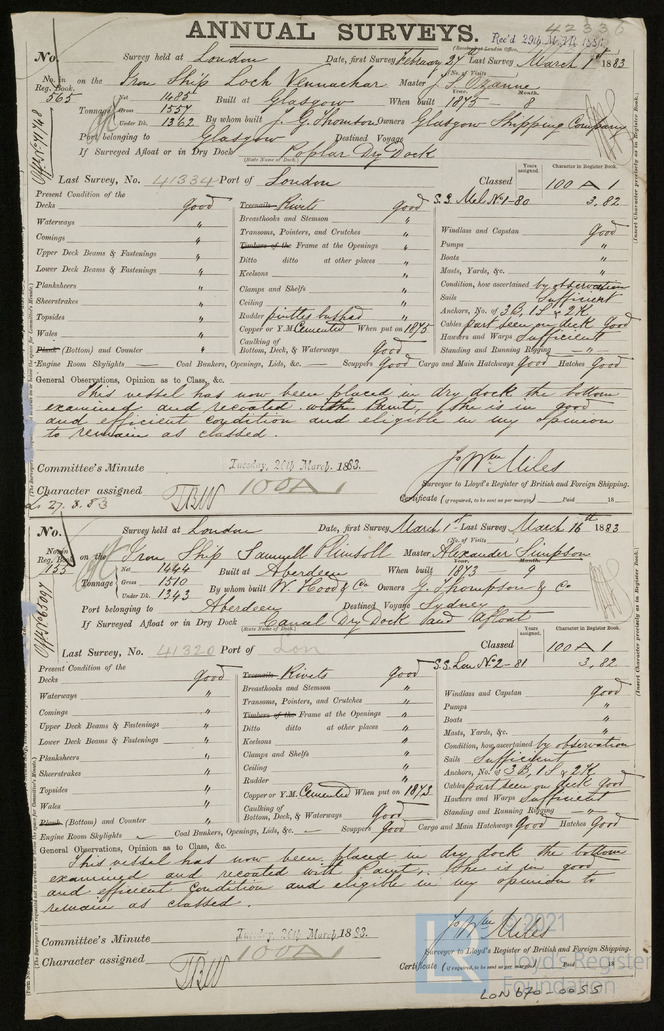 42336
ANNUAL SURVEYS.
Rec'd 29th MAR 1883
(Received at London Office,
No. Survey held at London Date, first Survey February 27th Last Survey March 1st 1883
(No. of Visits )
No. in Reg. Book. 565 on the Iron Ship Loch Vennachar Master J. S. Ozanne
Tonnage Net 1485 Gross 1557 Under Dk. 1362
Built at Glasgow When built Year. 1875 Month. 8
By whom built J. G. Thomson Owners Glasgow Shipping Company
Port belonging to Glasgow Destined Voyage
If Surveyed Afloat or in Dry Dock Poplar Dry Dock
(State Name of Dock.)
Last Survey, No. 41334 Port of London Classed
Years assigned. Character in Register Book.
100 A 1
S.S. Mel. No 1-80 3,82
Present Condition of the
Decks good
Waterways "
Comings "
Upper Deck Beams & Fastenings "
Lower Deck Beams & Fastenings "
Planksheers "
Sheerstrakes "
Topsides "
Wales "
Plank (Bottom) and Counter "
Treenails Rivets good
Breasthooks and Stemson "
Transoms, Pointers, and Crutches "
Timbers of the Frame at the Openings "
Ditto ditto at other places "
Keelsons "
Clamps and Shelfs "
Ceiling "
Rudder pintles bushed
Copper or Y.M. Cemented When put on 1875
Caulking of Bottom, Deck, & Waterways Good
Windlass and Capstan Good
Pumps "
Boats "
Masts, Yards, &c. "
Condition, how ascertained by observation
Sails Sufficient
Anchors, No. of 3 B, 1 S & 2 K
Cables part seen on deck Good
Hawsers and Warps Sufficient
Standing and Running Rigging "
Engine Room Skylights — Coal Bunkers, Openings, Lids, &c. — Scuppers Good Cargo and Main Hatchways Good Hatches Good
General Observations, Opinion as to Class, &c.
This vessel has now been placed in dry dock the bottom
examined and recoated with Paint, she is in good
and efficient condition and eligible in my opinion
to remain as classed.
Committee's Minute Tuesday, 26th March, 1883.
Character assigned 100A1
J. Wm Miles
Surveyor to Lloyd's Register of British and Foreign Shipping.
Certificate (if required, to be sent as per margin) Paid 18
27.3.83
No. Survey held at London Date, first Survey March 1st Last Survey March 16th 1883
(No. of Visits )
No. in Reg. Book 155 on the Iron Ship Samuell Plimsoll Master Alexander Simpson
Tonnage Net 1444 Gross 1510 Under Dk. 1343
Built at Aberdeen When built Year. 1873 Month. 9
By whom built W. Hood & Co Owners G. Thompson & Co
Port belonging to Aberdeen Destined Voyage Sydney
If Surveyed Afloat or in Dry Dock Canal Dry Dock and Afloat
(State Name of Dock.)
Last Survey, No. 41320 Port of Lon Classed
Years assigned. Character in Register Book.
100 A 1
S.S. Lon No 2-81 3,82
Present Condition of the
Decks good
Waterways "
Comings "
Upper Deck Beams & Fastenings "
Lower Deck Beams & Fastenings "
Planksheers "
Sheerstrakes "
Topsides "
Wales "
Plank (Bottom) and Counter "
Treenails Rivets good
Breasthooks and Stemson "
Transoms, Pointers, and Crutches "
Timbers of the Frame at the Openings "
Ditto ditto at other places "
Keelsons "
Clamps and Shelfs "
Ceiling "
Rudder "
Copper or Y.M. Cemented When put on 1873
Caulking of Bottom, Deck, & Waterways Good
Windlass and Capstan Good
Pumps "
Boats "
Masts, Yards, &c. "
Condition, how ascertained by observation
Sails Sufficient
Anchors, No. of 3 B, 1 S & 2 K
Cables part seen on deck Good
Hawsers and Warps Sufficient
Standing and Running Rigging "
Engine Room Skylights — Coal Bunkers, Openings, Lids, &c. — Scuppers Good Cargo and Main Hatchways Good Hatches Good
General Observations, Opinion as to Class, &c.
This vessel has now been placed in dry dock the bottom
examined and recoated with Paint, She is in good
and efficient condition and eligible in my opinion to
remain as classed.
Committee's Minute Tuesday, 26th March, 1883.
Character assigned 100A1
J. Wm Miles
Surveyor to Lloyd's Register of British and Foreign Shipping.
Certificate (if required, to be sent as per margin) Paid 18
© 2021
Lloyd's Register
Foundation
LON 670-0055